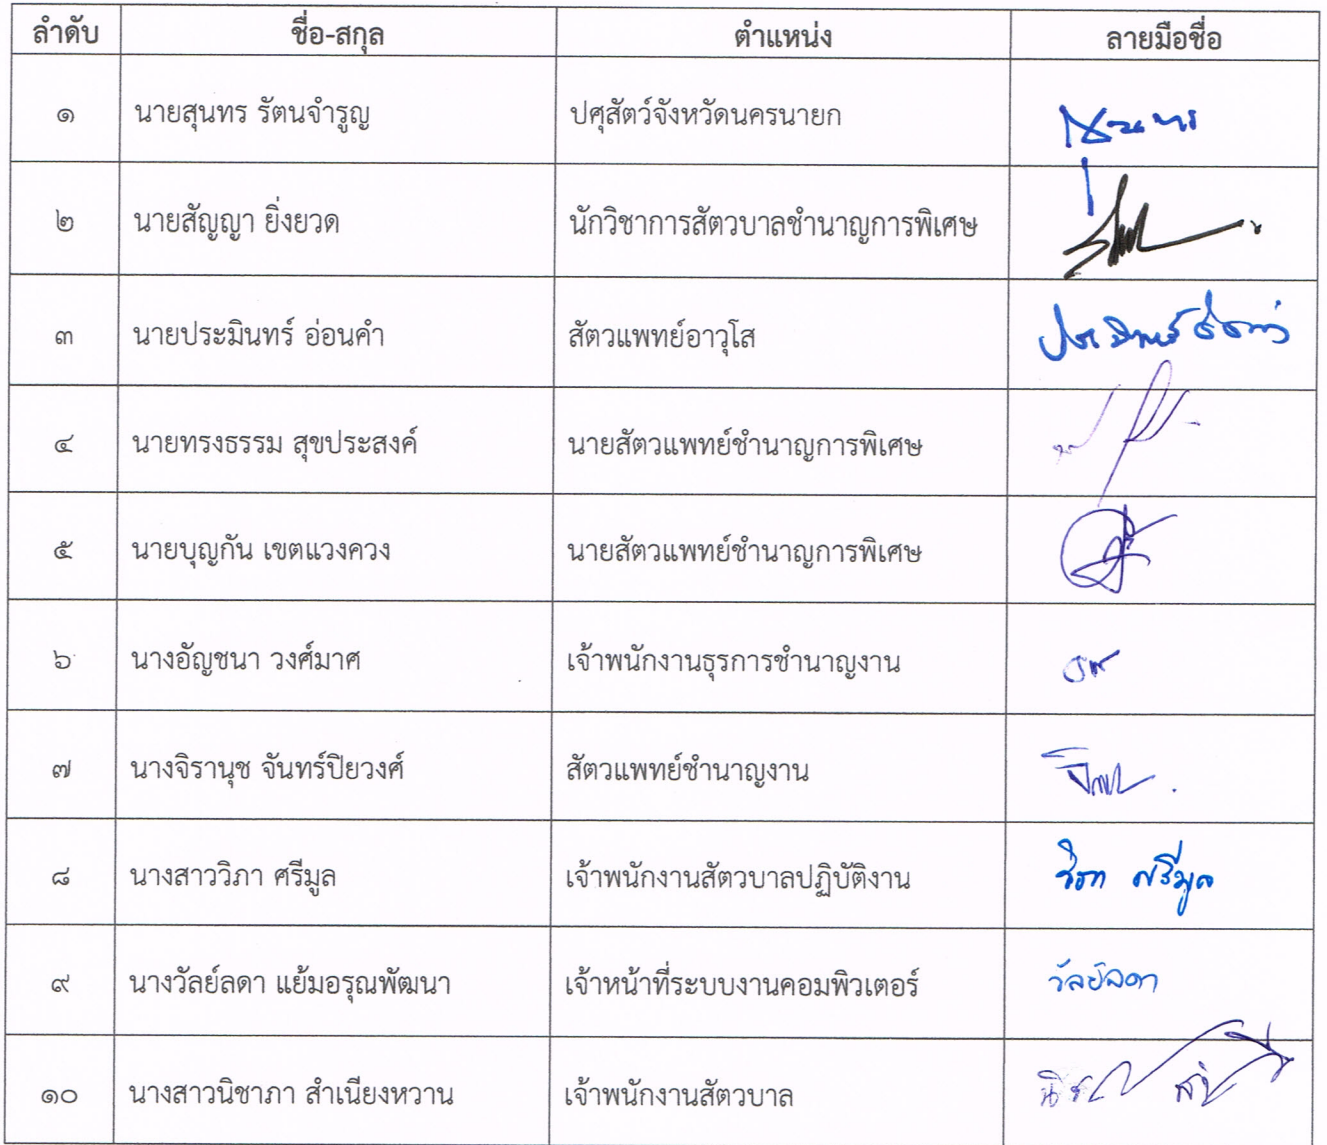 ลำดับ ชื่อ-สกุล ตำแหน่ง ลายมือชื่อ
๑ นายสุนทร รัตนจำรูญ ปศุสัตว์จังหวัดนครนายก
๒ นายสัญญา ยิ่งยวด นักวิชาการสัตวบาลชำนาญการพิเศษ
๓ นายประมินทร์ อ่อนคำ สัตวแพทย์อาวุโส
๔ นายทรงธรรม สุขประสงค์ นายสัตวแพทย์ชำนาญการพิเศษ
๕ นายบุญกัน เขตแวงควง นายสัตวแพทย์ชำนาญการพิเศษ
๖ นางอัญชนา วงศ์มาศ เจ้าพนักงานธุรการชำนาญงาน
๗ นางจิรานุช จันทร์ปิยวงศ์ สัตวแพทย์ชำนาญงาน
๘ นางสาววิภา ศรีมูล เจ้าพนักงานสัตวบาลปฏิบัติงาน วิภา ศรีมูล
๙ นางวัลย์ลดา แย้มอรุณพัฒนา เจ้าหน้าที่ระบบงานคอมพิวเตอร์ วัลย์ลดา
๑๐ นางสาวนิชาภา สำเนียงหวาน เจ้าพนักงานสัตวบาล